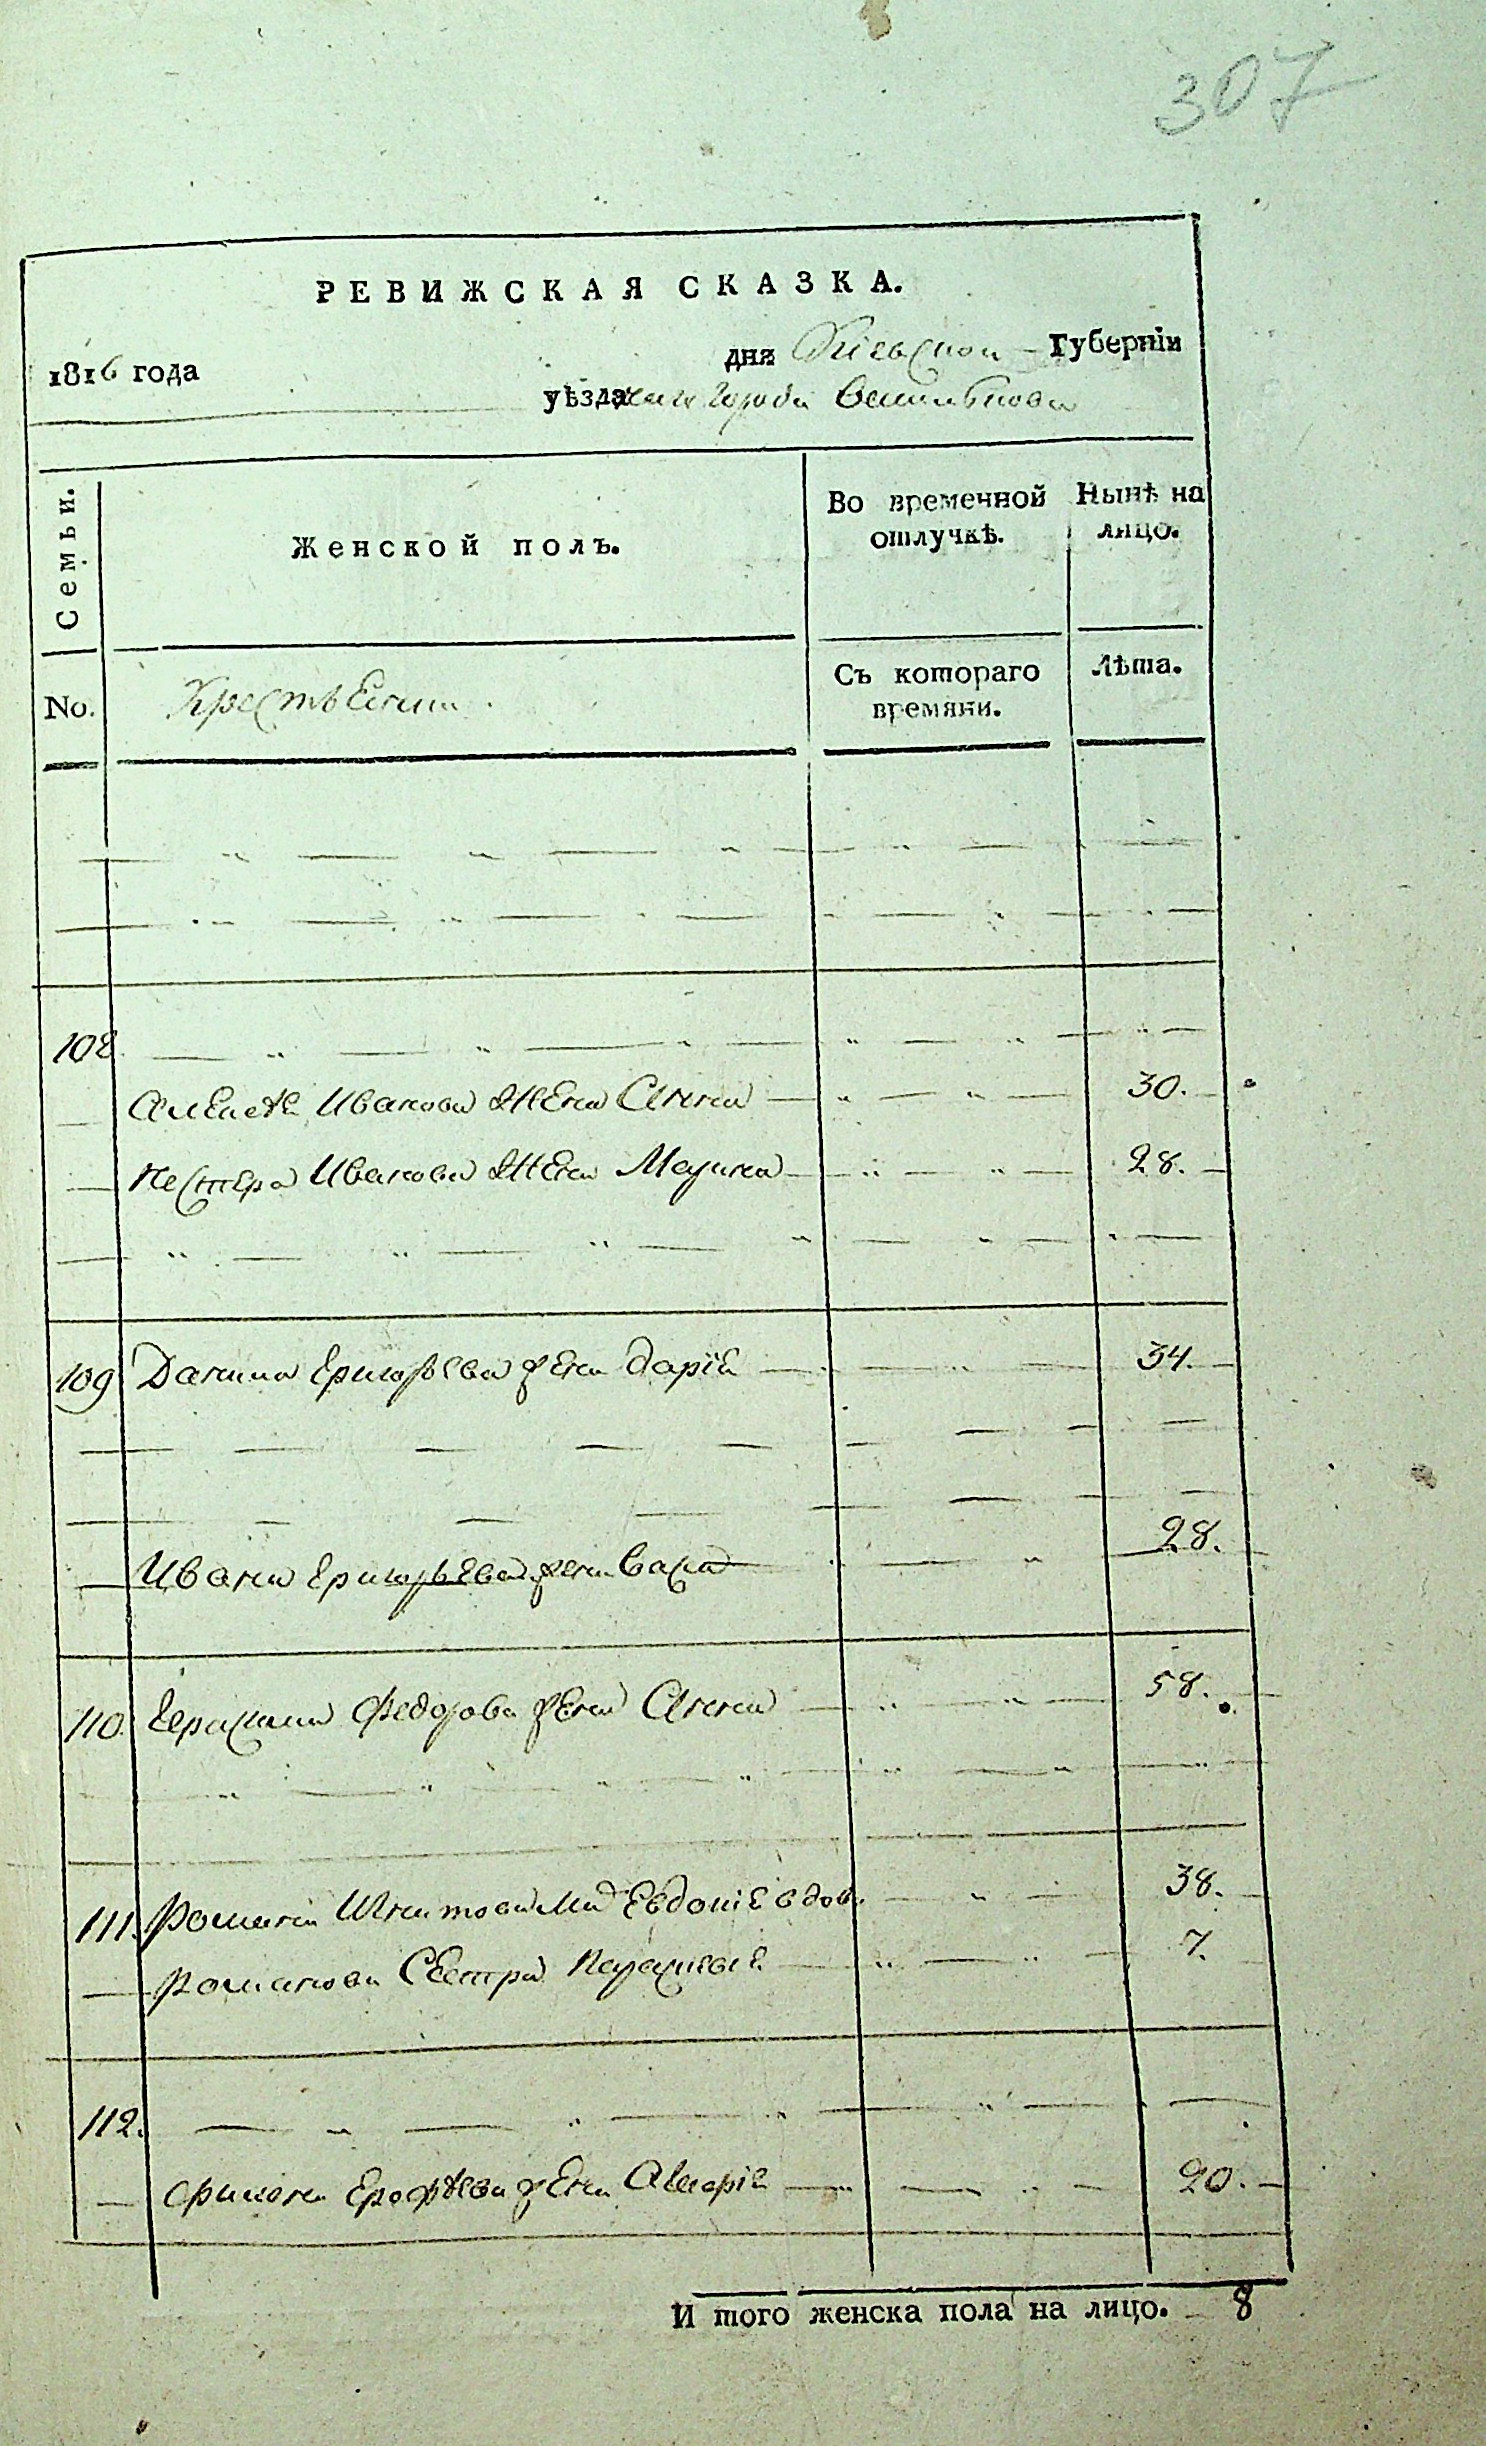 307
РЕВИЖСКАЯ СКАЗКА.
1816 года дня Кіевской Губерніи
уѣзда города Василькова
Семьи.
Женской полъ.
Во временной отлучкѣ.
Нынѣ на лицо.
No.
Крестьяне
Съ котораго времяни.
Лѣта.
108
Алексѣя Иванова жена Анна 30.
Нестера Иванова жена Марина 28.
109 Данила Григорьева жена Дарія 34.
Ивана Григорьева жена 28.
110. Герасима Федорова жена Анна 58.
111. Романа Евдокія вдова 38.
Романова Сестра Параскевія 7.
112.
Ерофѣева жена Марія 20.
И того женска пола на лицо. 8